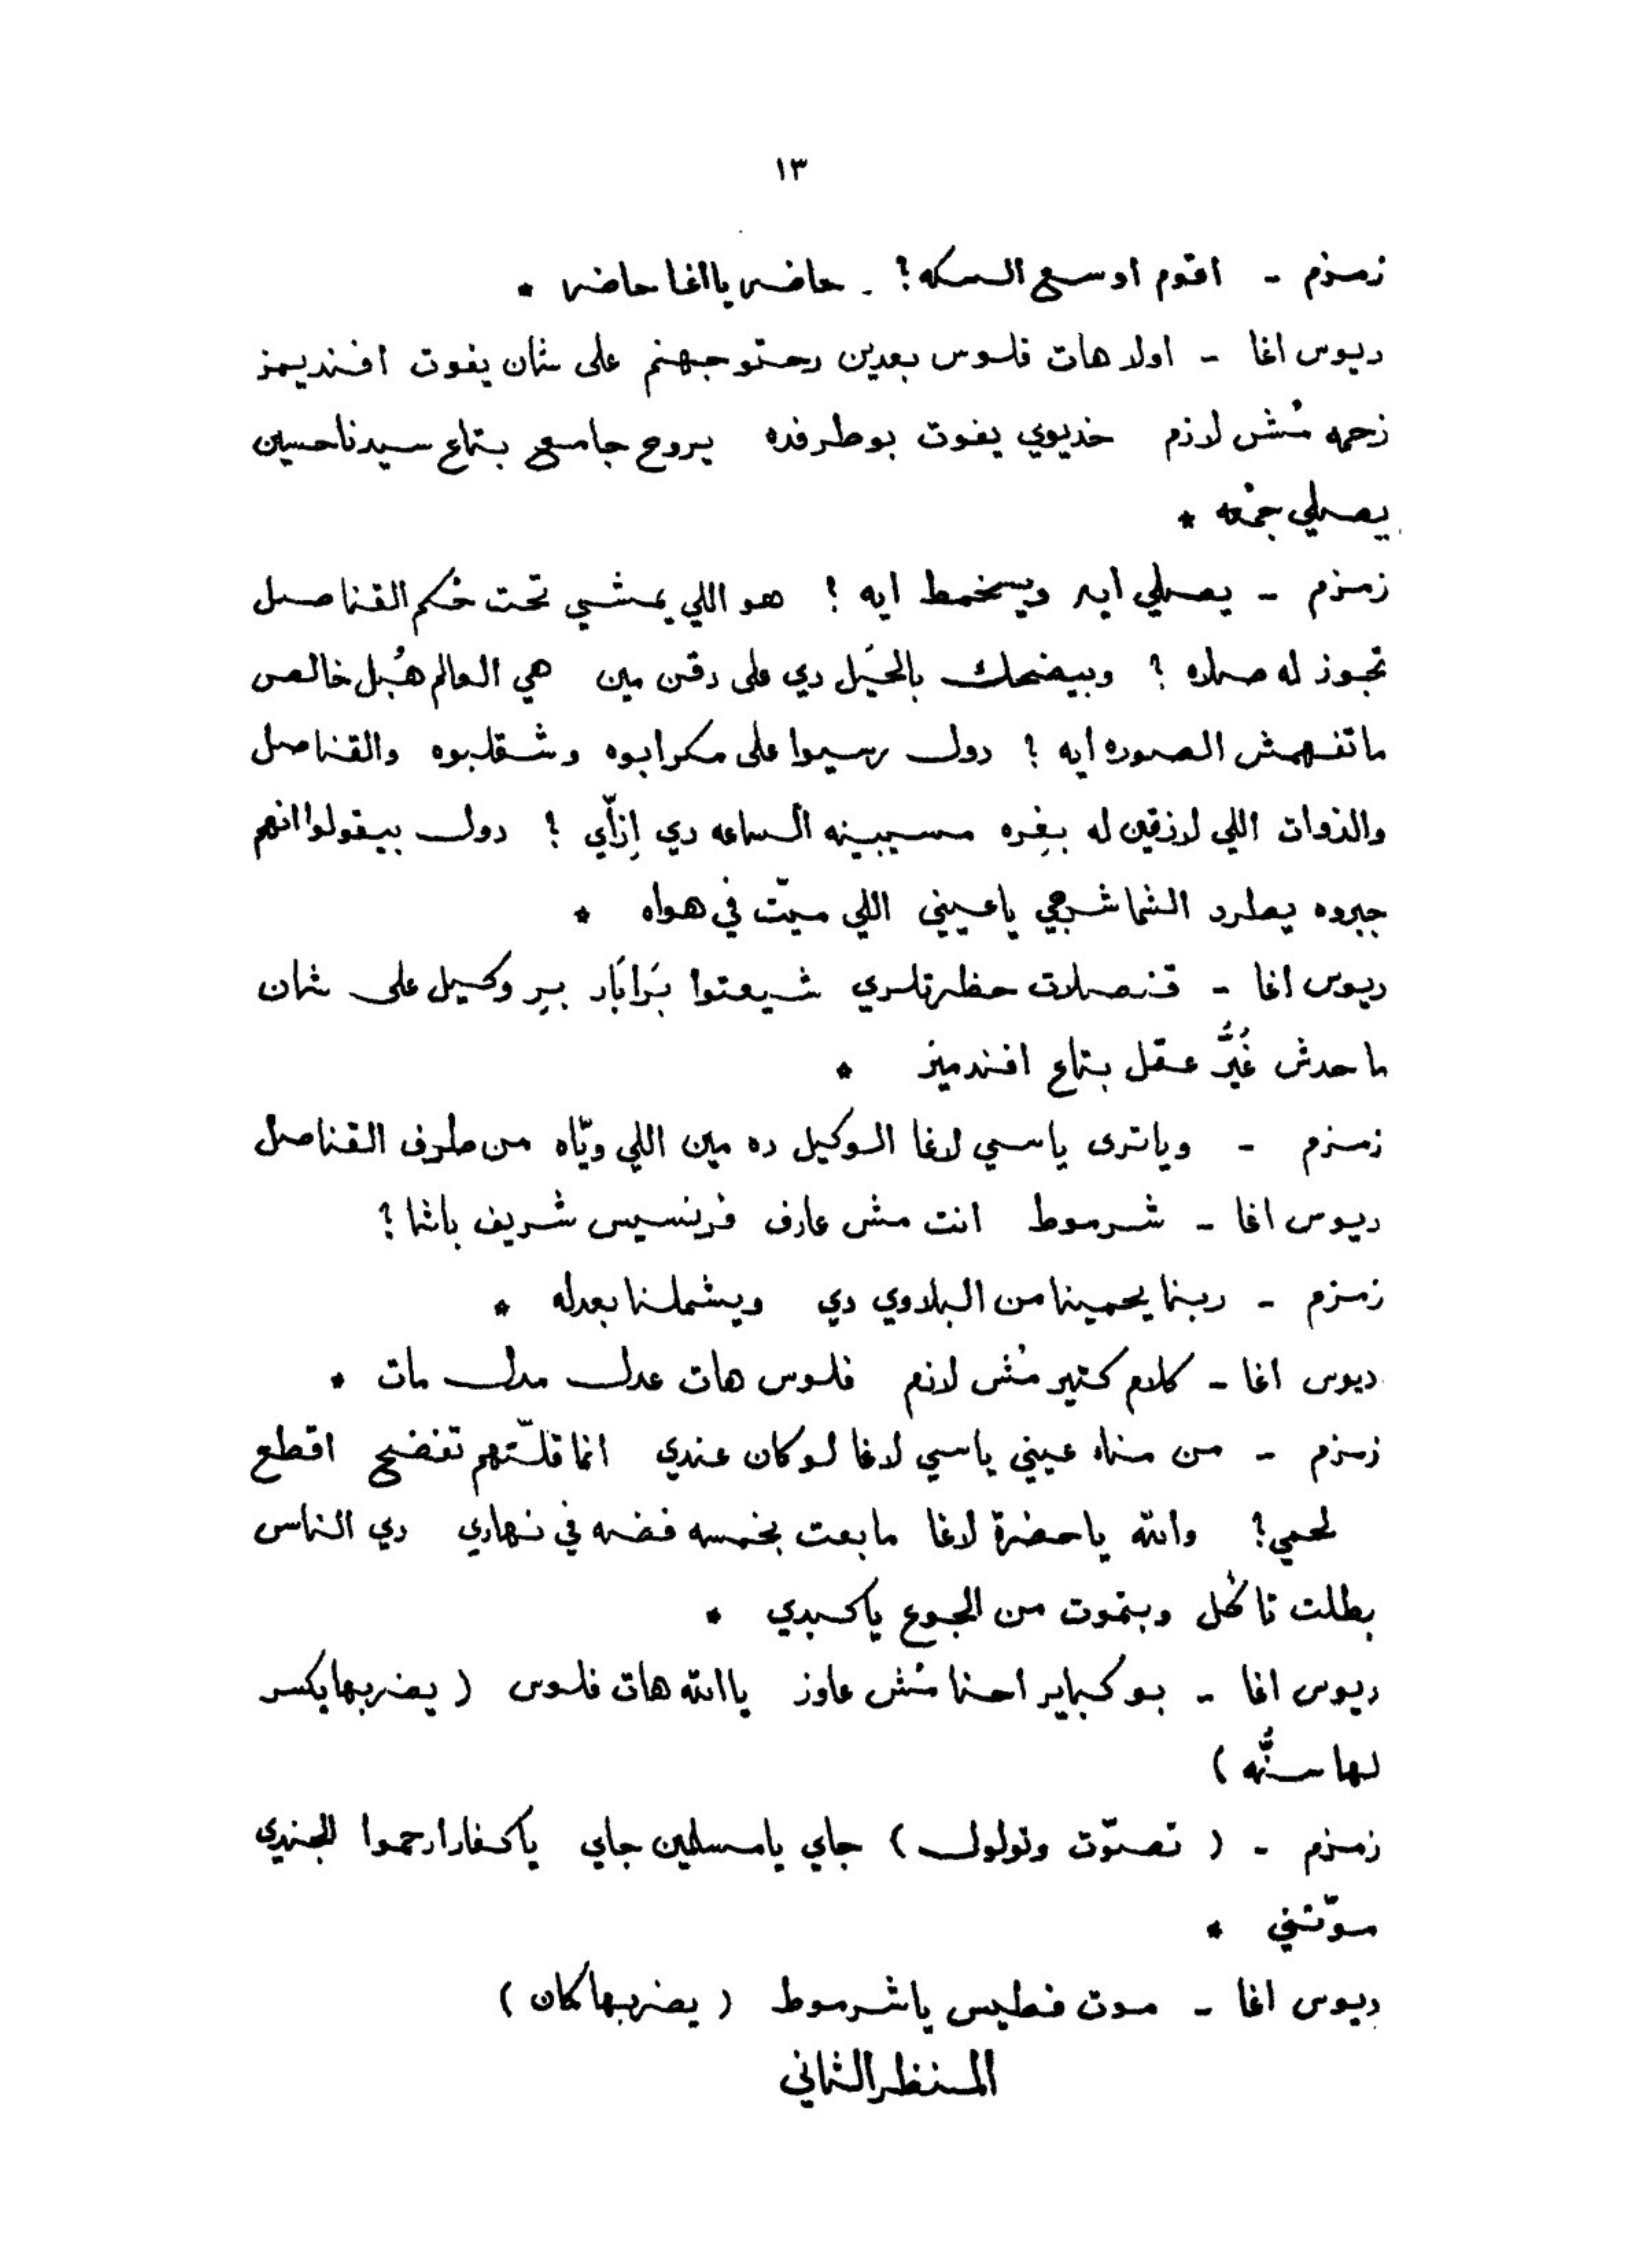 ١٣
زمزم - اقوم اوسع السكه؟ - حاضر يااغا حاضر *
ديوس اغا - اولا هات فلوس بعدين رحتو جهنم على شان يفوت افنديمز
زحمه مُش لازم خديوي يفوت بوطرفده يروح جامع بتاع سيدنا حسين
يصلي جمْعه *
زمزم - يصلي ايه ويسخمط ايه ؟ هو اللي يمشي تحت حُكم القناصل
تجوز له صلاه ؟ وبيضحك بالحيَل دي على دقن مين هي العالم هُبل خالص
ماتفهمش الصوره ايه ؟ دول رسيوا على مكر ابوه وشقلبوه والقناصل
والذوات اللي لازقين له بغِره مسيبينه الساعه دي إزاّي ؟ دول بيقولوا انهم
جبروه يطرد الشماشرجي ياعيني اللي ميّت في هواه *
ديوس اغا - قنصلات حظرتلري شيعتوا بَرابَار بير وكيل على شان
ماحدش غُيَّر عقل بتاع افندميز *
زمزم - وياترى ياسي لاغا الوكيل ده مين اللي ويّاه من طرف القناصل
ديوس اغا - شرموط انت مش عارف فرنسيس شريف باشا ؟
زمزم - ربنا يحمينا من البلاوي دي ويشملنا بعدله *
ديوس اغا - كلام كتير مُش لازم فلوس هات عدل مدل مات *
زمزم - من مناه عيني ياسي لاغا لو كان عندي انما قلّتهم تفضح اقطع
لحمي؟ والله ياحضرة لاغا مابعت بخمسه فضه في نهاري دي الناس
بطلت تاكُل وبتموت من الجوع ياكبدي *
ديوس اغا - بو كباير احنا مُش عاوز ياالله هات فلوس ( يضربها يكسر
لها سنُّه )
زمزم - ( تصوّت وتولول ) جاي يامسلمين جاي ياكفار ارحموا الجندي
موّتني *
ديوس اغا - موت فطيس ياشرموط ( يضربها كمان )
المنظر الثاني